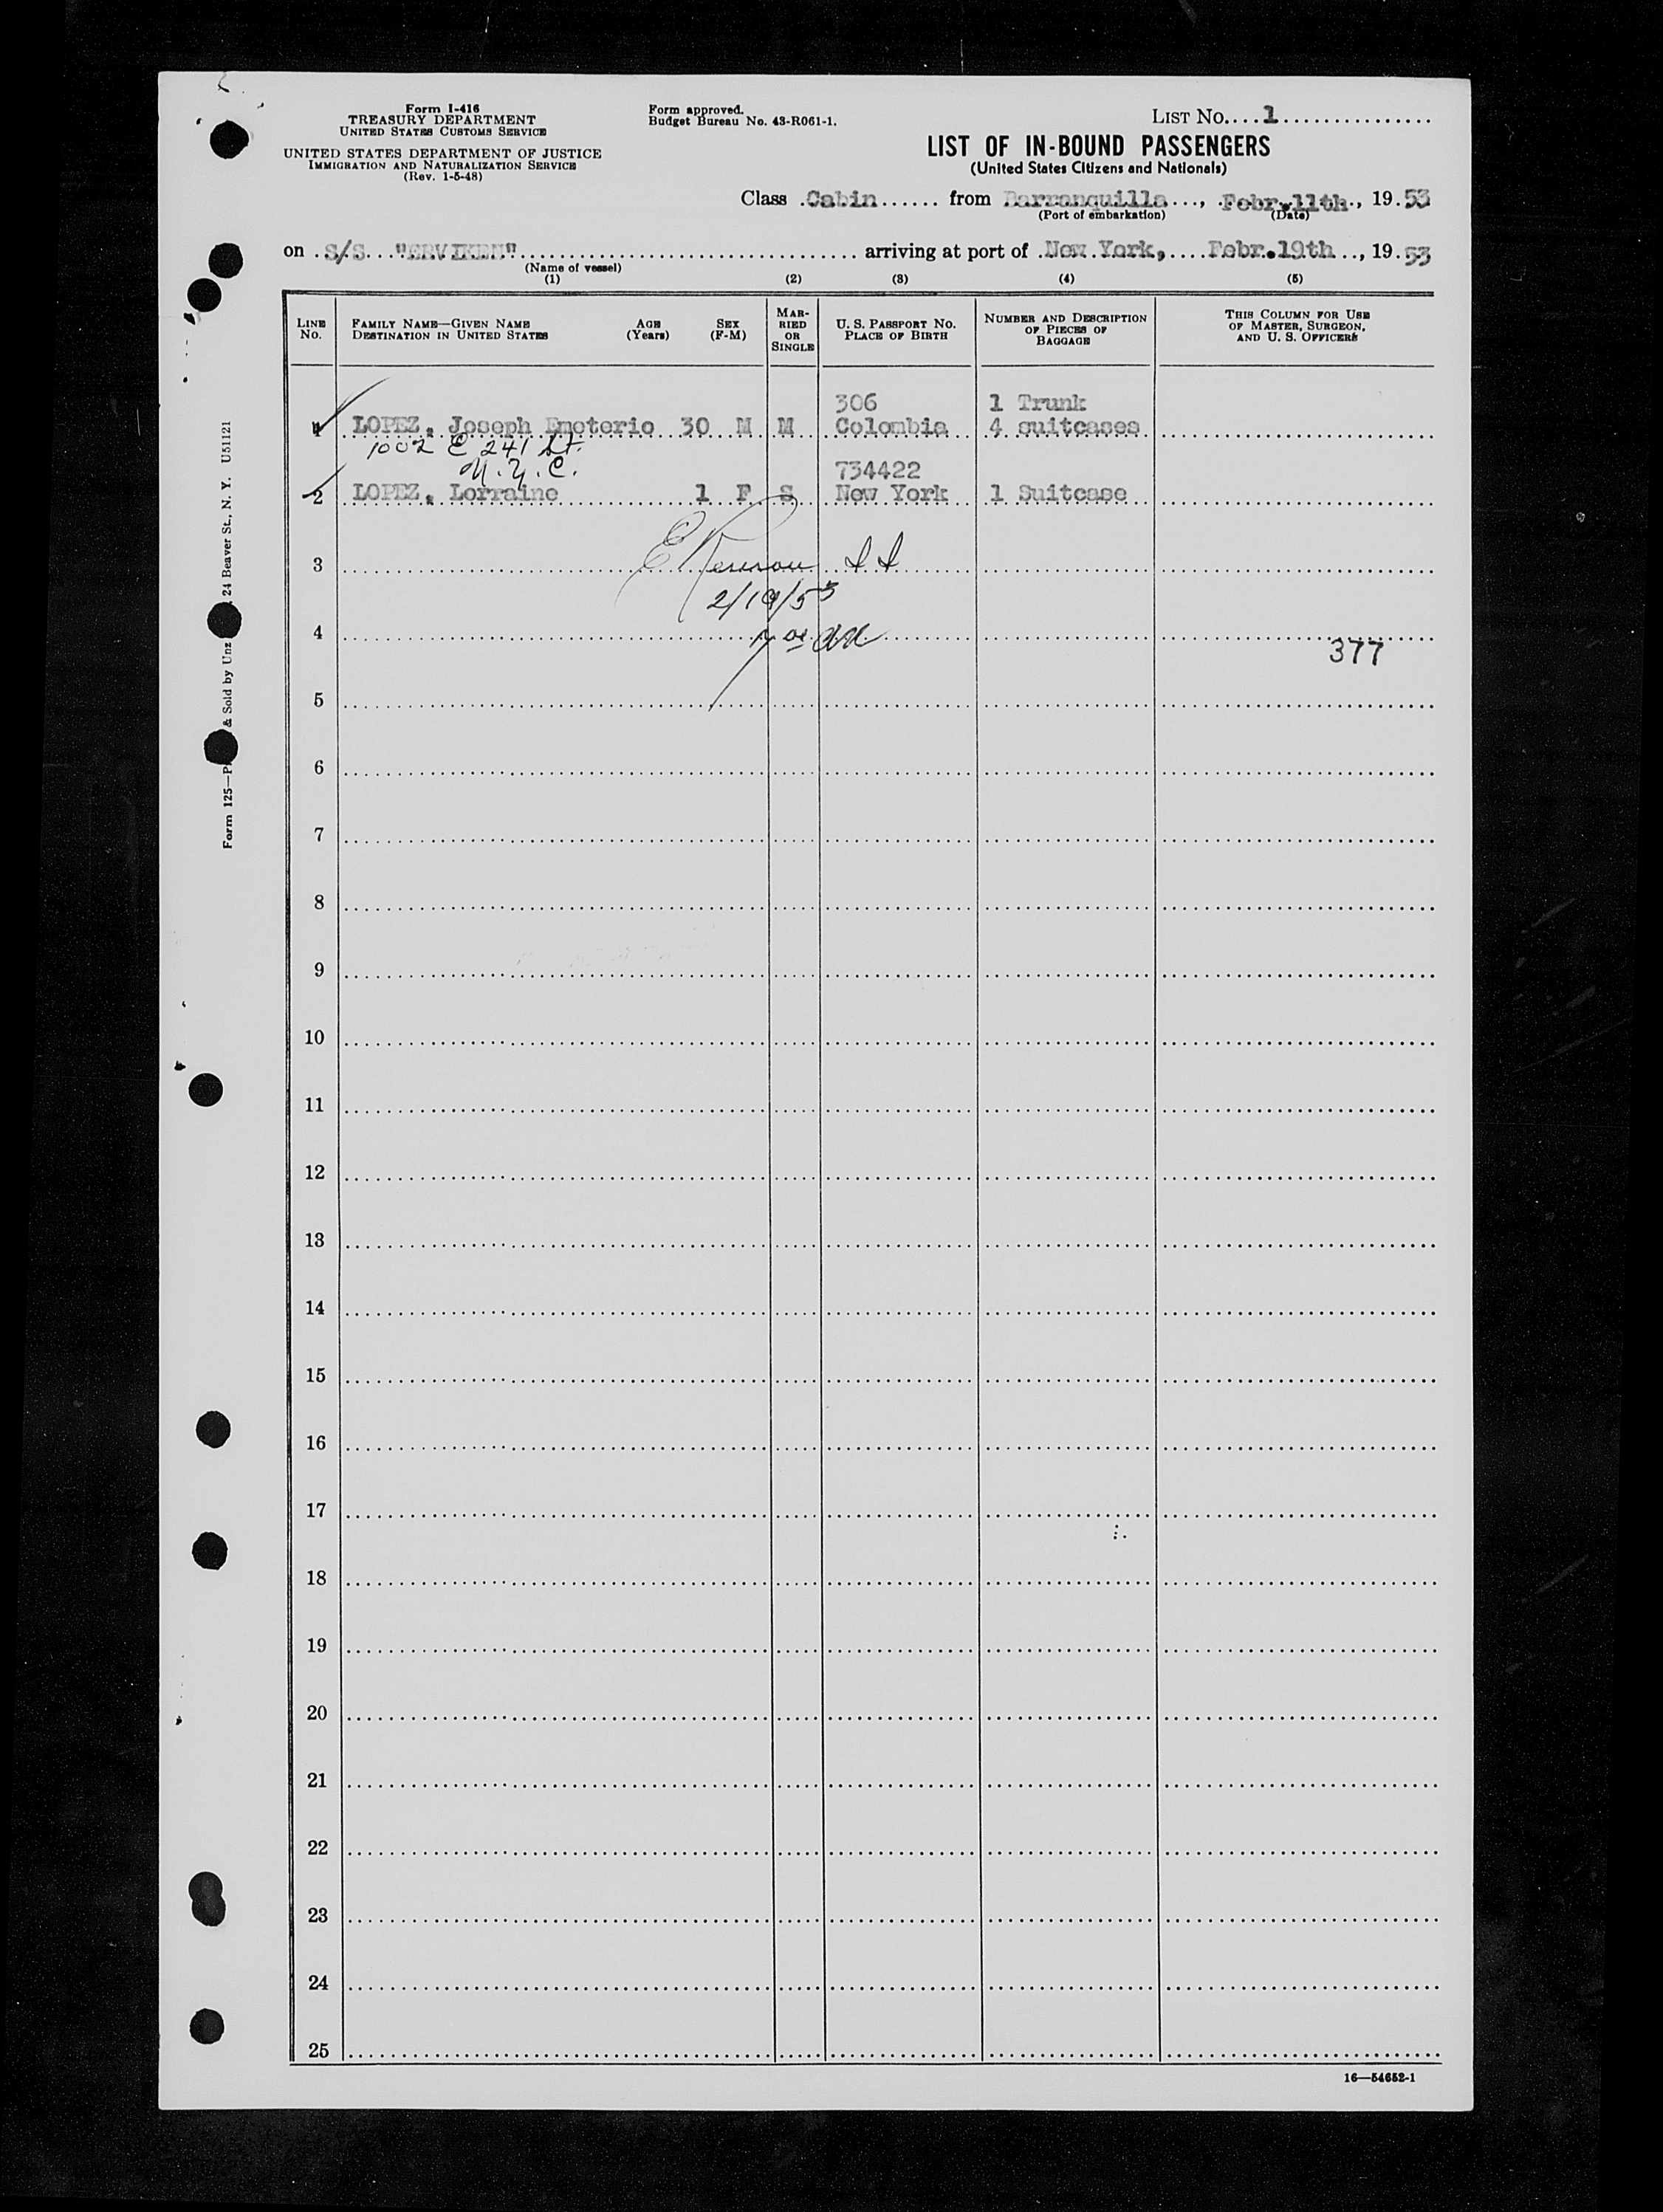 Form I-416
TREASURY DEPARTMENT
UNITED STATES CUSTOMS SERVICE
UNITED STATES DEPARTMENT OF JUSTICE
IMMIGRATION AND NATURALIZATION SERVICE
(Rev. 1-5-48)
Form approved.
Budget Bureau No. 43-R061-1.
LIST No. 1
LIST OF IN-BOUND PASSENGERS
(United States Citizens and Nationals)
Class Cabin from Barranquilla, Febr. 11th, 1953
(Port of embarkation) (Date)
on S/S "ERVIKEN" arriving at port of New York, Febr. 19th, 1953
(Name of vessel)
(1) (2) (3) (4) (5)
LINE No.
FAMILY NAME—GIVEN NAME
DESTINATION IN UNITED STATES
AGE (Years)
SEX (F-M)
MARRIED OR SINGLE
U. S. PASSPORT No.
PLACE OF BIRTH
NUMBER AND DESCRIPTION OF PIECES OF BAGGAGE
THIS COLUMN FOR USE OF MASTER, SURGEON, AND U. S. OFFICERS
306 1 Trunk
1 LOPEZ, Joseph Emeterio 30 M M Colombia 4 suitcases
1002 E 241 St.
N.Y.C.
734422
2 LOPEZ, Lorraine 1 F S New York 1 Suitcase
3
2/19/53
4
377
5
6
7
8
9
10
11
12
13
14
15
16
17
18
19
20
21
22
23
24
25
16—54652-1
Form 125— & Sold by Unz 24 Beaver St., N. Y. U51121